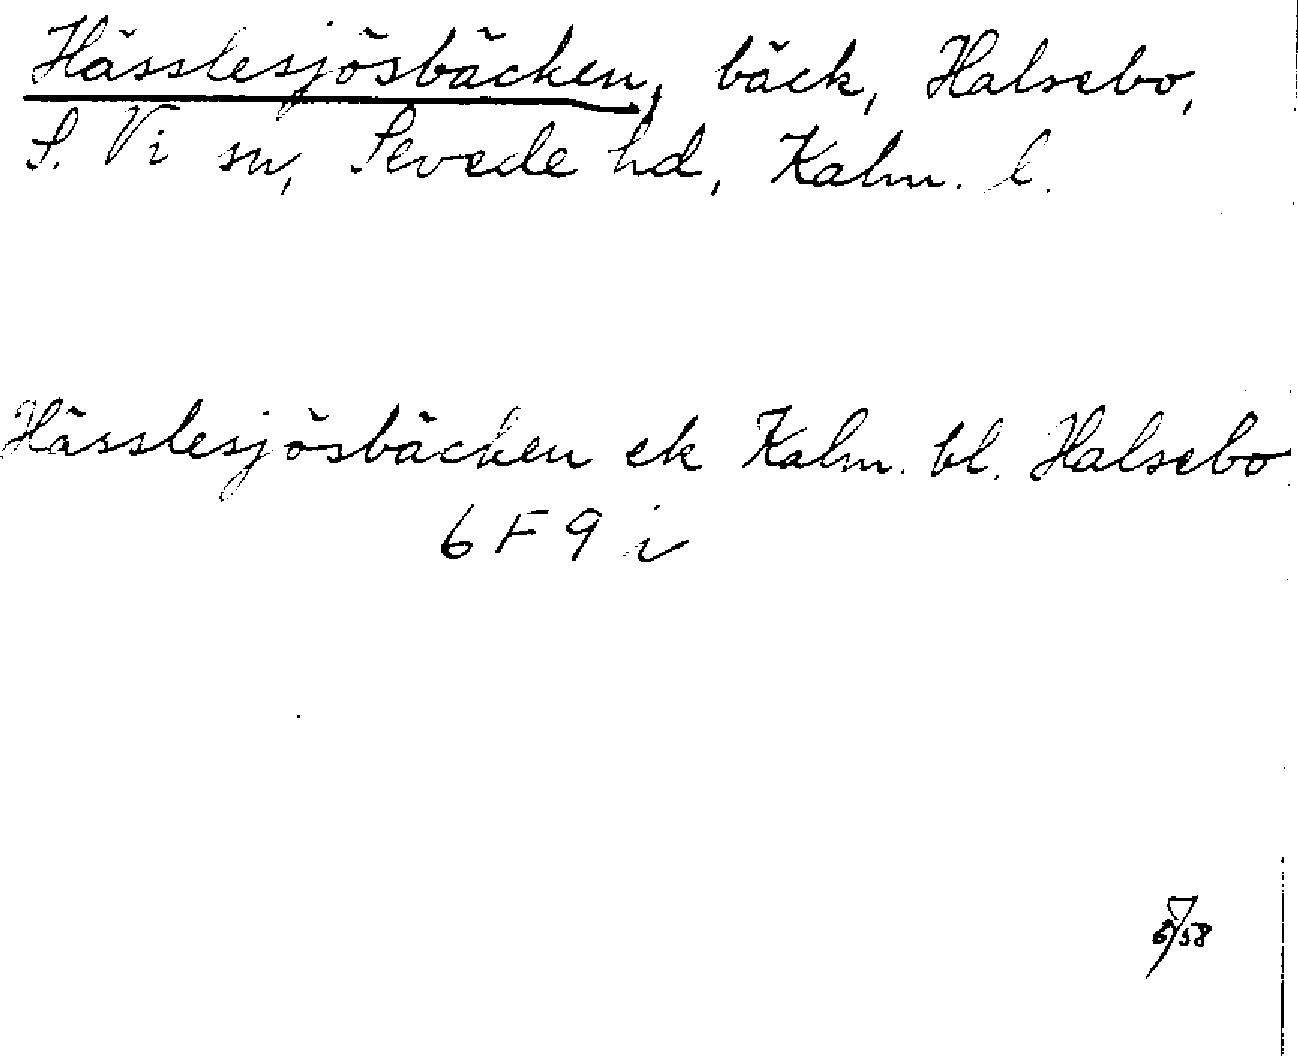 Hässlesjösbäcken, bäck, Halsebo,
S. Vi sn, Sevede hd, Kalm. l.
Hässlesjösbäcken ek Kalm. bl. Halsebo
6 F 9 i